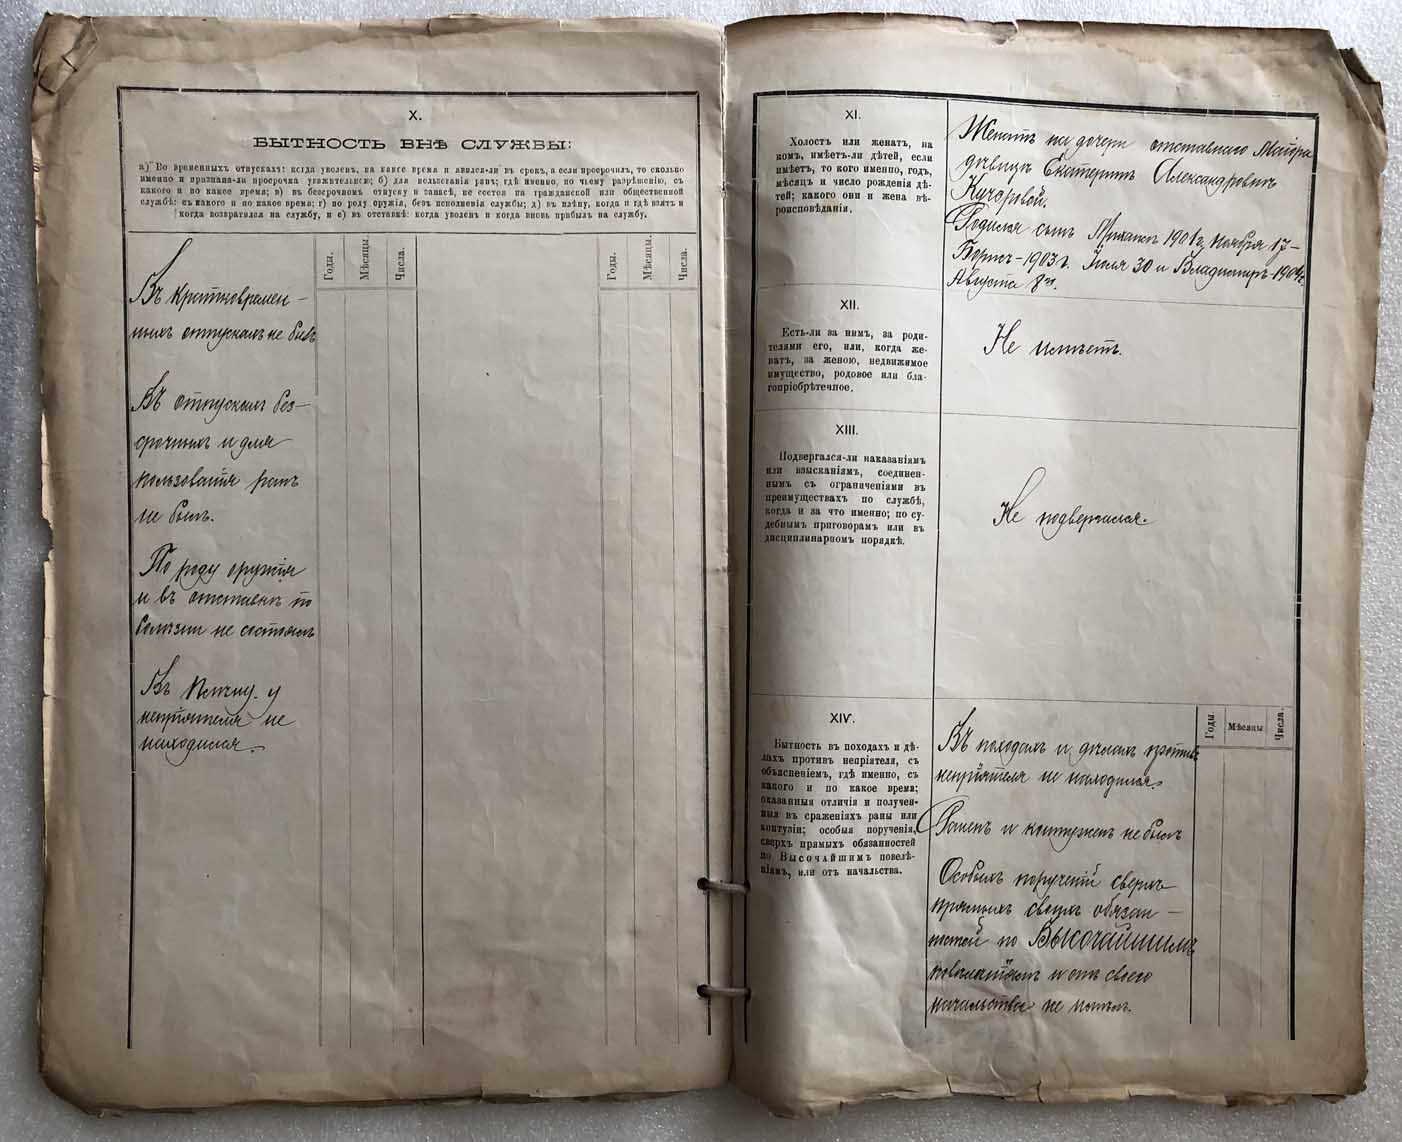 X.
БЫТНОСТЬ ВНѢ СЛУЖБЫ:
а) Во временныхъ отпускахъ: когда уволенъ, на какое время и явился-ли въ срокъ, а если просрочилъ, то сколько
именно и признана-ли просрочка уважительною; б) для пользованія ранъ; гдѣ именно, по чьему разрѣшенію, съ
какого и по какое время; в) въ безсрочномъ отпуску и запасѣ, не состоя на гражданской или общественной
службѣ: съ какого и по какое время; г) по роду оружія, безъ исполненія службы; д) въ плѣну, когда и гдѣ взятъ и
когда возвратился на службу, и е) въ отставкѣ: когда уволенъ и когда вновь прибылъ на службу.
Годы. Мѣсяцы. Числа. Годы. Мѣсяцы. Числа.
Въ кратковремен-
ныхъ отпускахъ не былъ
Въ отпускахъ без-
срочныхъ и для
пользованія ранъ
не былъ.
По роду оружія
и въ отставкѣ по
болѣзни не состоялъ
Въ плѣну у
непріятеля не
находился.
XI.
Холостъ или женатъ, на
комъ, имѣетъ-ли дѣтей, если
имѣетъ, то кого именно, годъ,
мѣсяцъ и число рожденія дѣ-
тей; какого они и жена вѣ-
роисповѣданія.
Женатъ на дочери отставного Маіора
дѣвицѣ Екатеринѣ Александровнѣ
Родился сынъ Михаилъ 1901 г. Ноября 17-
Борисъ-1903 г. Іюля 30 и Владиміръ-190
Августа 8
XII.
Есть-ли за нимъ, за роди-
телями его, или, когда же-
натъ, за женою, недвижимое
имущество, родовое или бла-
гопріобрѣтечное.
Не имѣетъ.
XIII.
Подвергался-ли наказаніямъ
или взысканіямъ, соединен-
нымъ съ ограниченіями въ
преимуществахъ по службѣ,
когда и за что именно; по су-
дебнымъ приговорамъ или въ
дисциплинарномъ порядкѣ.
Не подвергался.
XIV.
Бытность въ походахъ и дѣ-
лахъ противъ непріятеля, съ
объясненіемъ, гдѣ именно, съ
какого и по какое время;
оказанныя отличія и получен-
ныя въ сраженіяхъ раны или
контузіи; особыя порученія,
сверхъ прямыхъ обязанностей
по Высочайшимъ повелѣ-
ніямъ, или отъ начальства.
Годы. Мѣсяцы Числа.
Въ походахъ и дѣлахъ противъ
непріятеля не находился.
Раненъ и контуженъ не былъ
Особыхъ порученій сверхъ
прямыхъ своихъ обязан-
ностей по Высочайшимъ
повелѣніямъ и отъ своего
начальства не имѣлъ.